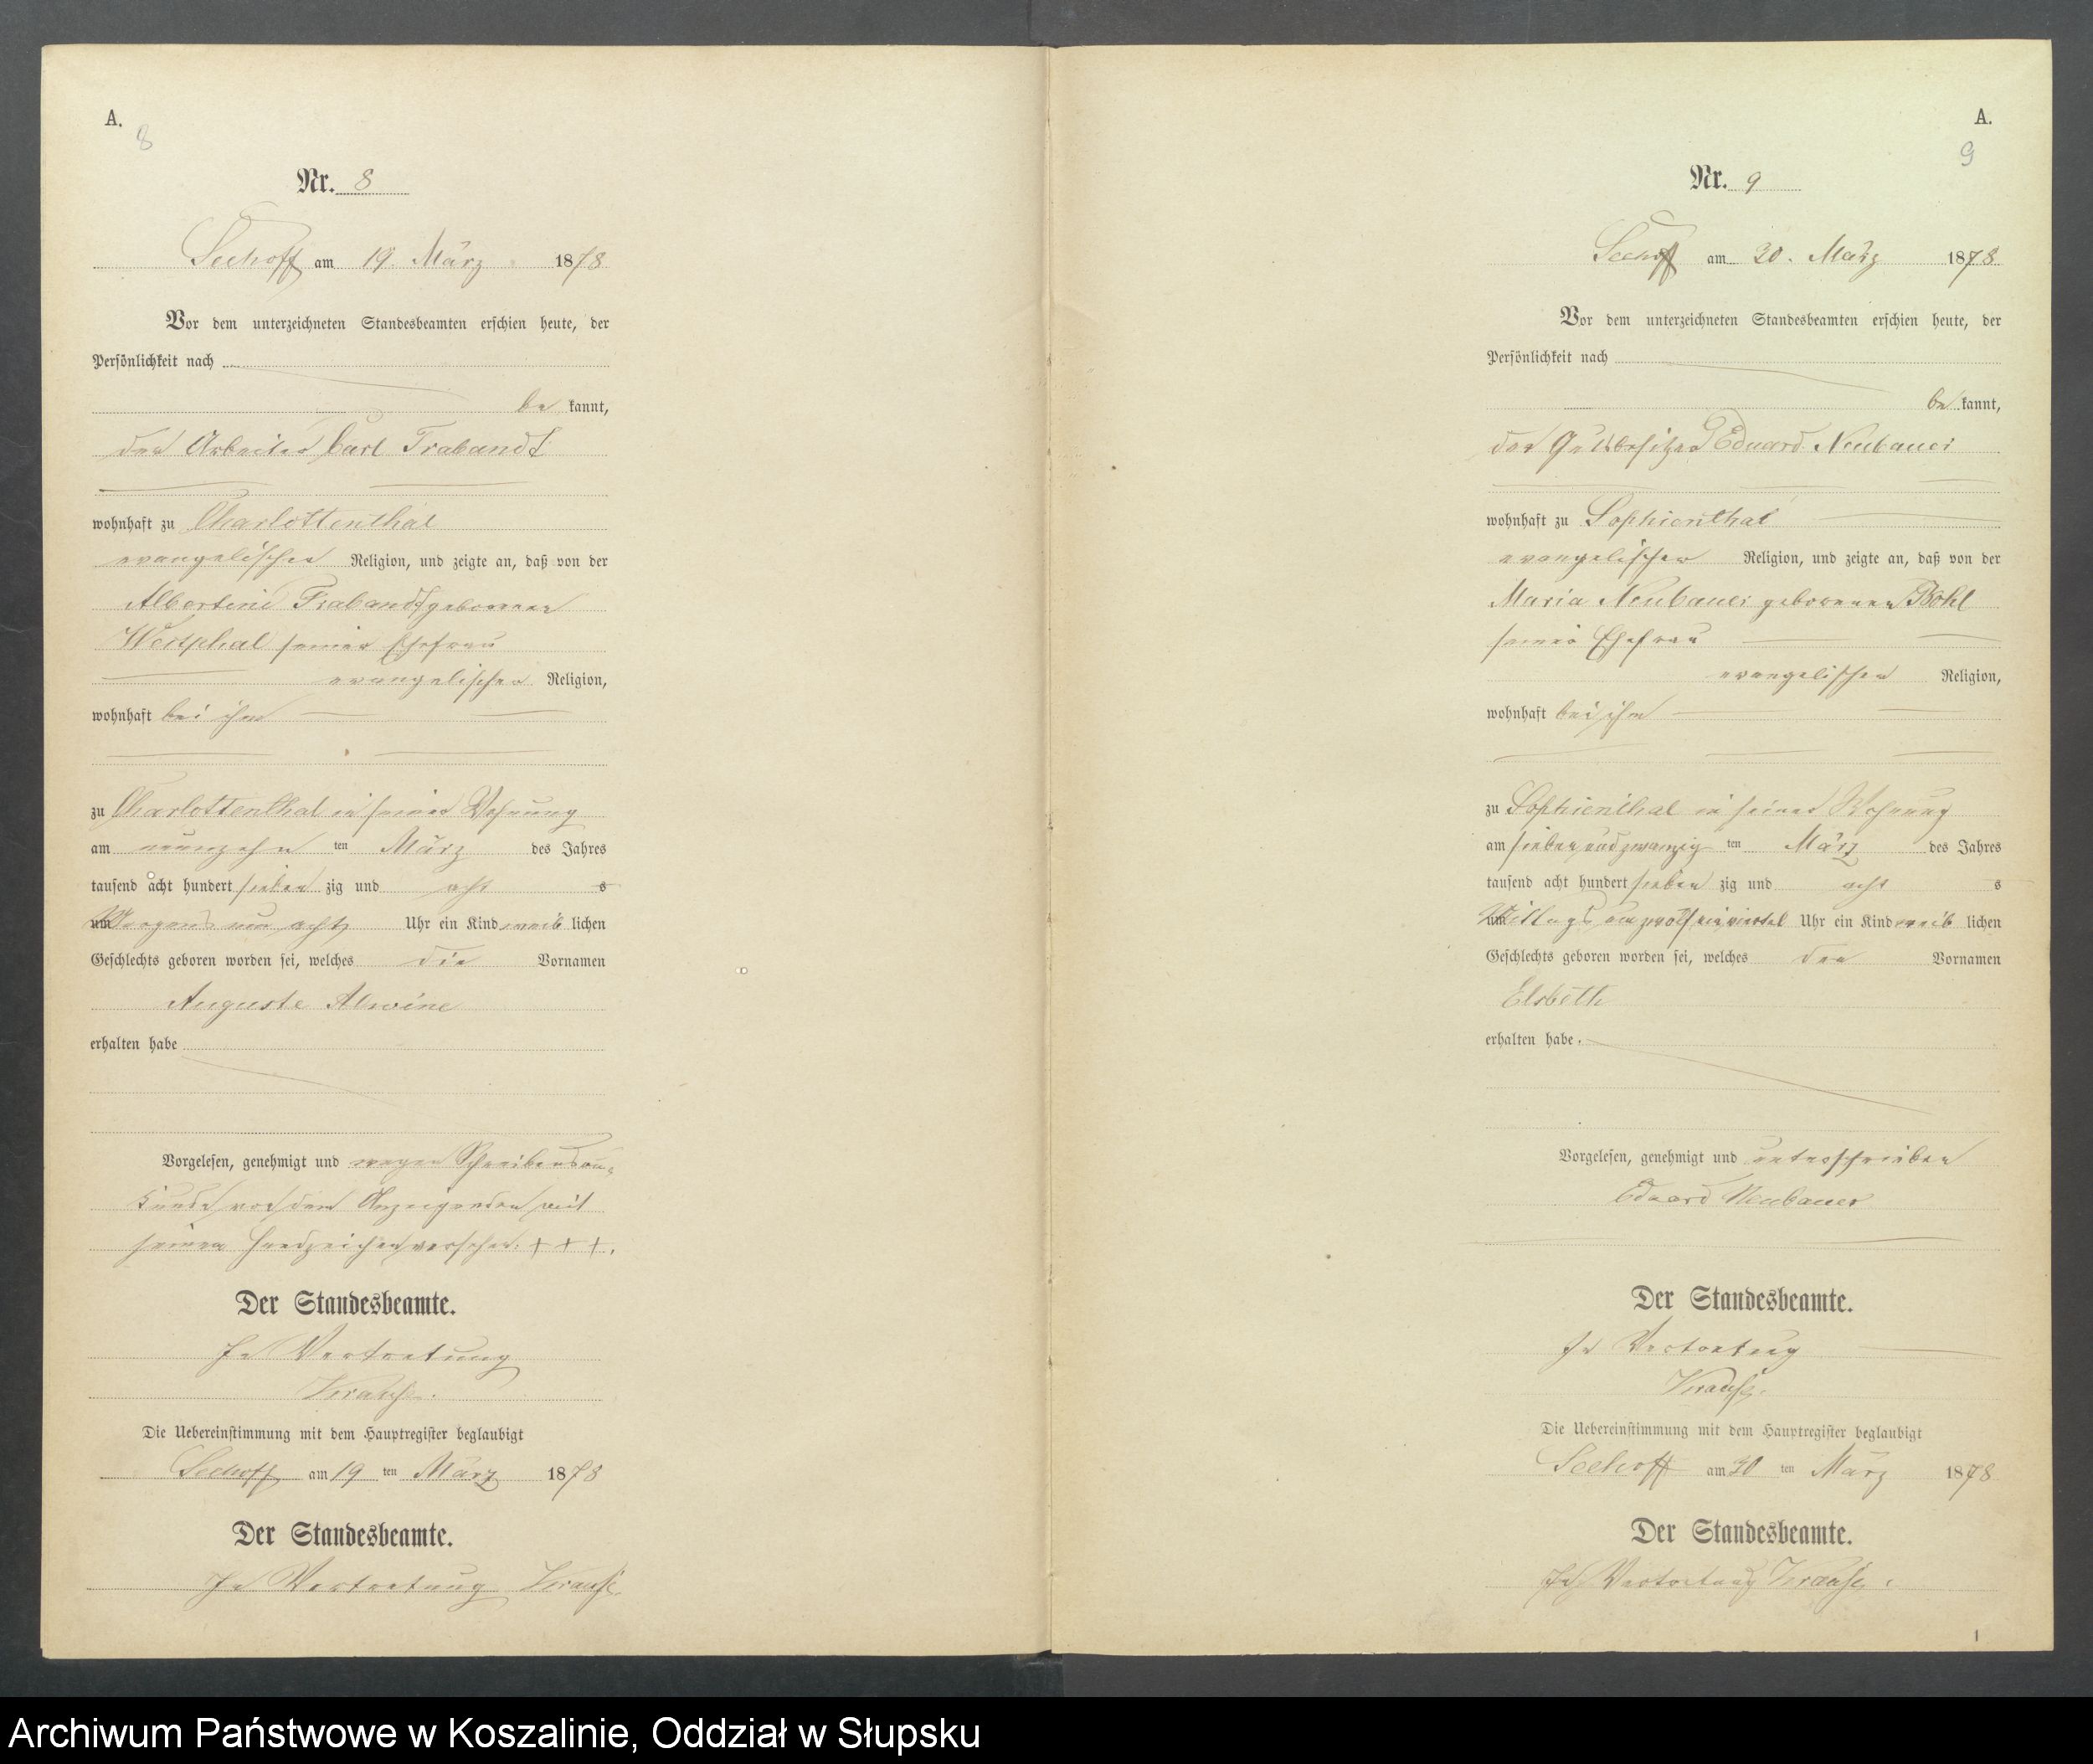 A.
8
Nr. 8
Seehoff am 19. März 1878
Vor dem unterzeichneten Standesbeamten erschien heute, der
Persönlichkeit nach
be kannt,
der Arbeiter Carl Trabandt
wohnhaft zu Charlottenthal
evangelischer Religion, und zeigte an, daß von der
Albertine Trabandt geborenen
Westphal seiner Ehefrau
evangelischer Religion,
wohnhaft bei ihm
zu Charlottenthal in seiner Wohnung
am neunzehn ten März des Jahres
tausend acht hundert sieben zig und acht s
Morgens um acht Uhr ein Kind weib lichen
Geschlechts geboren worden sei, welches die Vornamen
Auguste Alwine
erhalten habe
Vorgelesen, genehmigt und wegen Schreibensun-
kunde von dem Anzeigenden mit
seinen Handzeichen versehen. + + +.
Der Standesbeamte.
In Vertretung
Krause.
Die Uebereinstimmung mit dem Hauptregister beglaubigt
Seehoff am 19 ten März 1878
Der Standesbeamte.
In Vertretung Krause.
A.
9
Nr. 9
Seehoff am 30. März 1878
Vor dem unterzeichneten Standesbeamten erschien heute, der
Persönlichkeit nach
be kannt,
der Gutsbesitzer Eduard Neubauer
wohnhaft zu Sophienthal
evangelischer Religion, und zeigte an, daß von der
Maria Neubauer geborenen
seiner Ehefrau
evangelischer Religion,
wohnhaft bei ihm
zu Sophienthal in seiner Wohnung
am siebenundzwanzig ten März des Jahres
tausend acht hundert sieben zig und acht s
Mittags um zwölf einviertel Uhr ein Kind weib lichen
Geschlechts geboren worden sei, welches den Vornamen
Elsbeth
erhalten habe.
Vorgelesen, genehmigt und unterschrieben
Eduard Neubauer
Der Standesbeamte.
In Vertretung
Krause.
Die Uebereinstimmung mit dem Hauptregister beglaubigt
Seehoff am 30 ten März 1878
Der Standesbeamte.
In Vertretung Krause.
Archiwum Państwowe w Koszalinie, Oddział w Słupsku